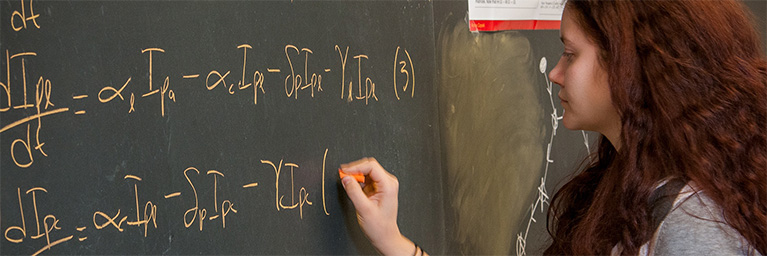 dt
dIpl/dt = αl Ipa - αc Ipl - δp Ipl - γl Ipl (3)
dIpc = αc Ipl - δp Ipc - γc Ipc (